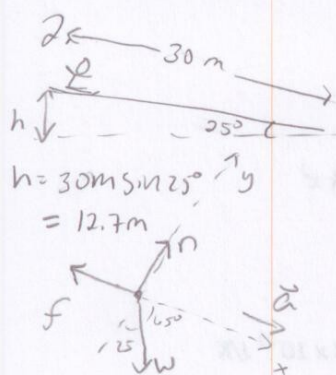 2
30 m
h
25°
h = 30m sin 25°
y
= 12.7m
n
f
a
65°
25
w
x